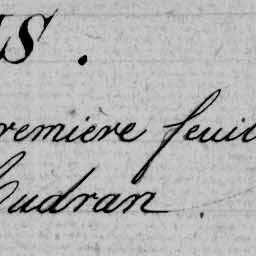 S.
remière feuil
udran.